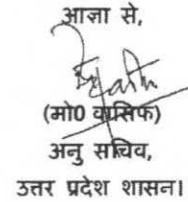 आज्ञा से,
(मो0 वासिफ)
अनु सचिव,
उत्तर प्रदेश शासन।